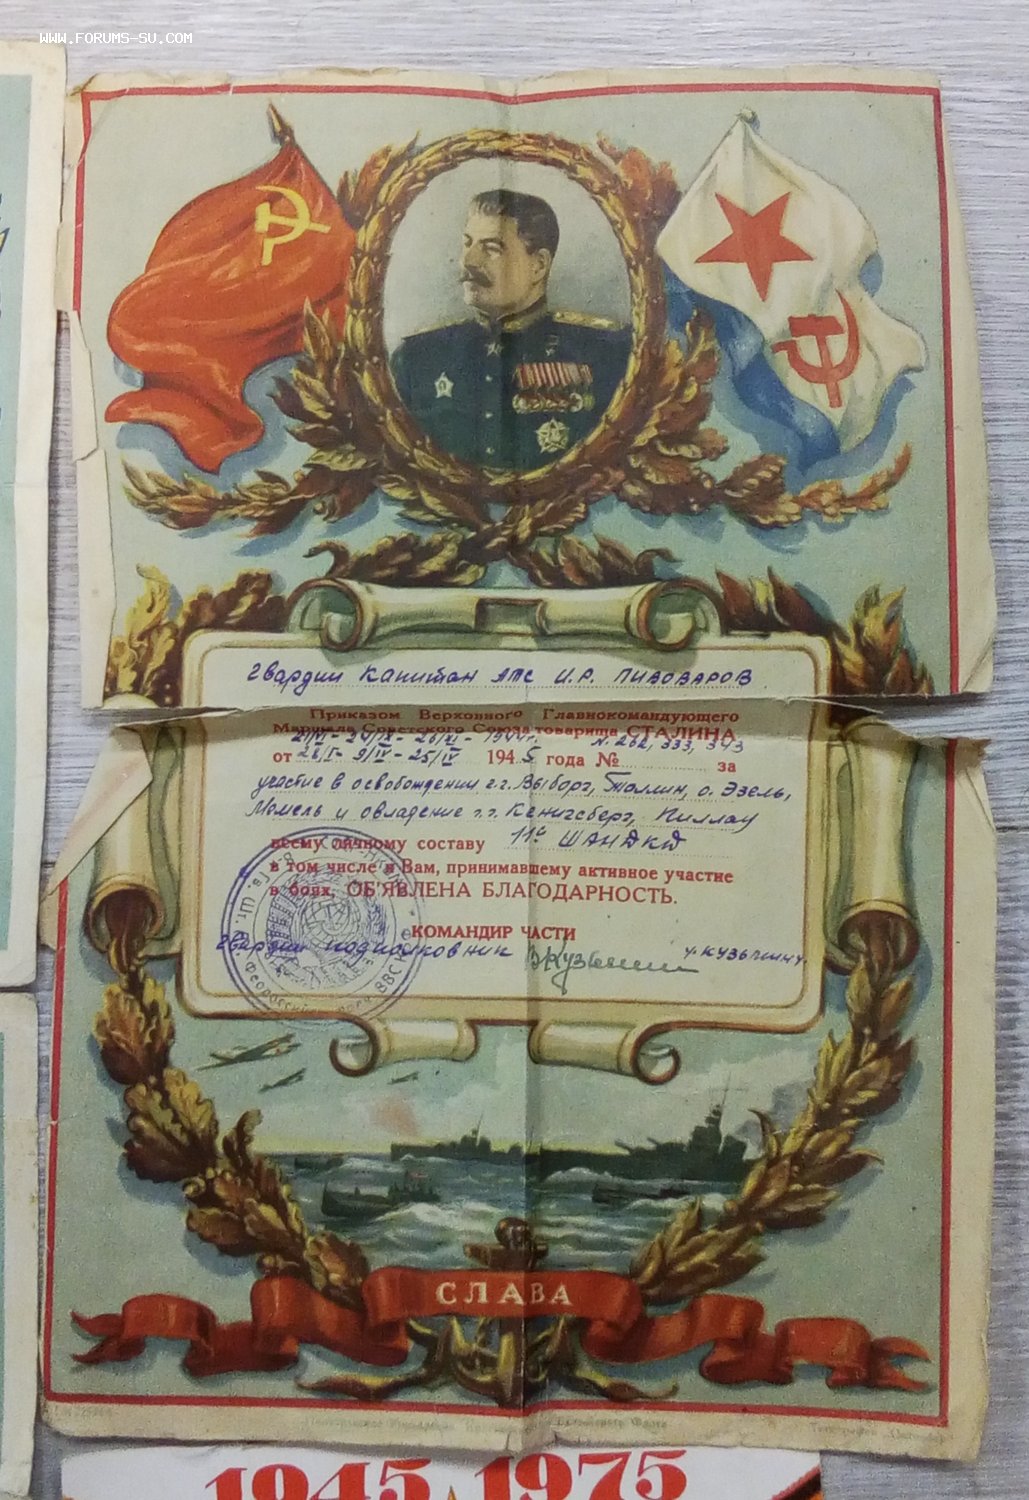 WWW.FORUMS-SU.COM
гвардии капитан АТС И.Р. ПИВОВАРОВ
Приказом Верховного Главнокомандующего
Маршала Советского Союза товарища СТАЛИНА
21/VI - 24/IX - 26/XI - 1944г. N. 262, 333, 343
от 28/I - 9/IV - 25/IV 1945 года № за
участие в освобождении г.г. Выборг, Таллин, о. Эзель,
Мемель и овладение г.г. Кенигсберг, Пиллау
всему личному составу 11й ШАПДКД
в том числе и Вам, принимавшему активное участие
в боях, ОБ'ЯВЛЕНА БЛАГОДАРНОСТЬ.
КОМАНДИР ЧАСТИ
гвардии подполковник
ВВС
СЛАВА
1945 1975